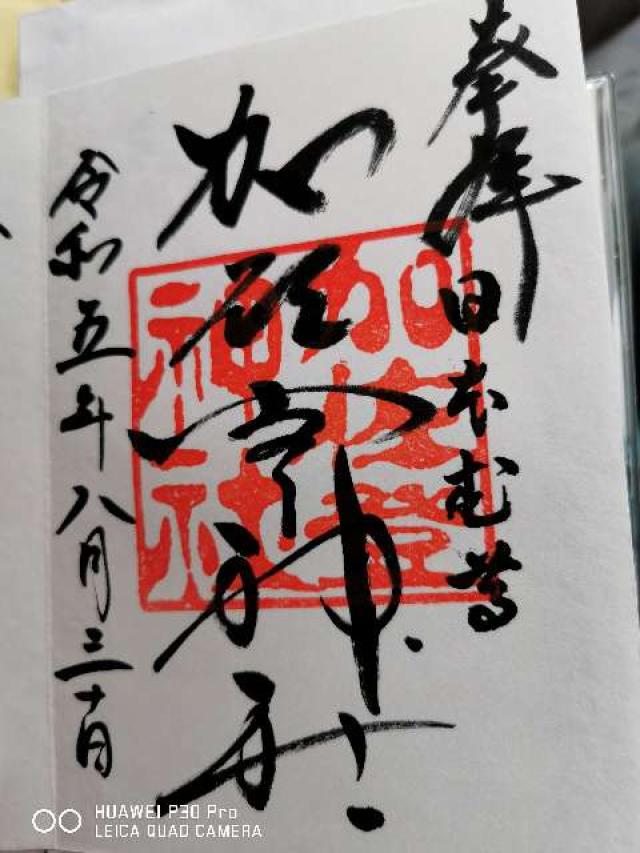 奉拝 日本武尊
加佐登神社
令和五年八月三十日
加佐登
神社
HUAWEI P30 Pro
LEICA QUAD CAMERA